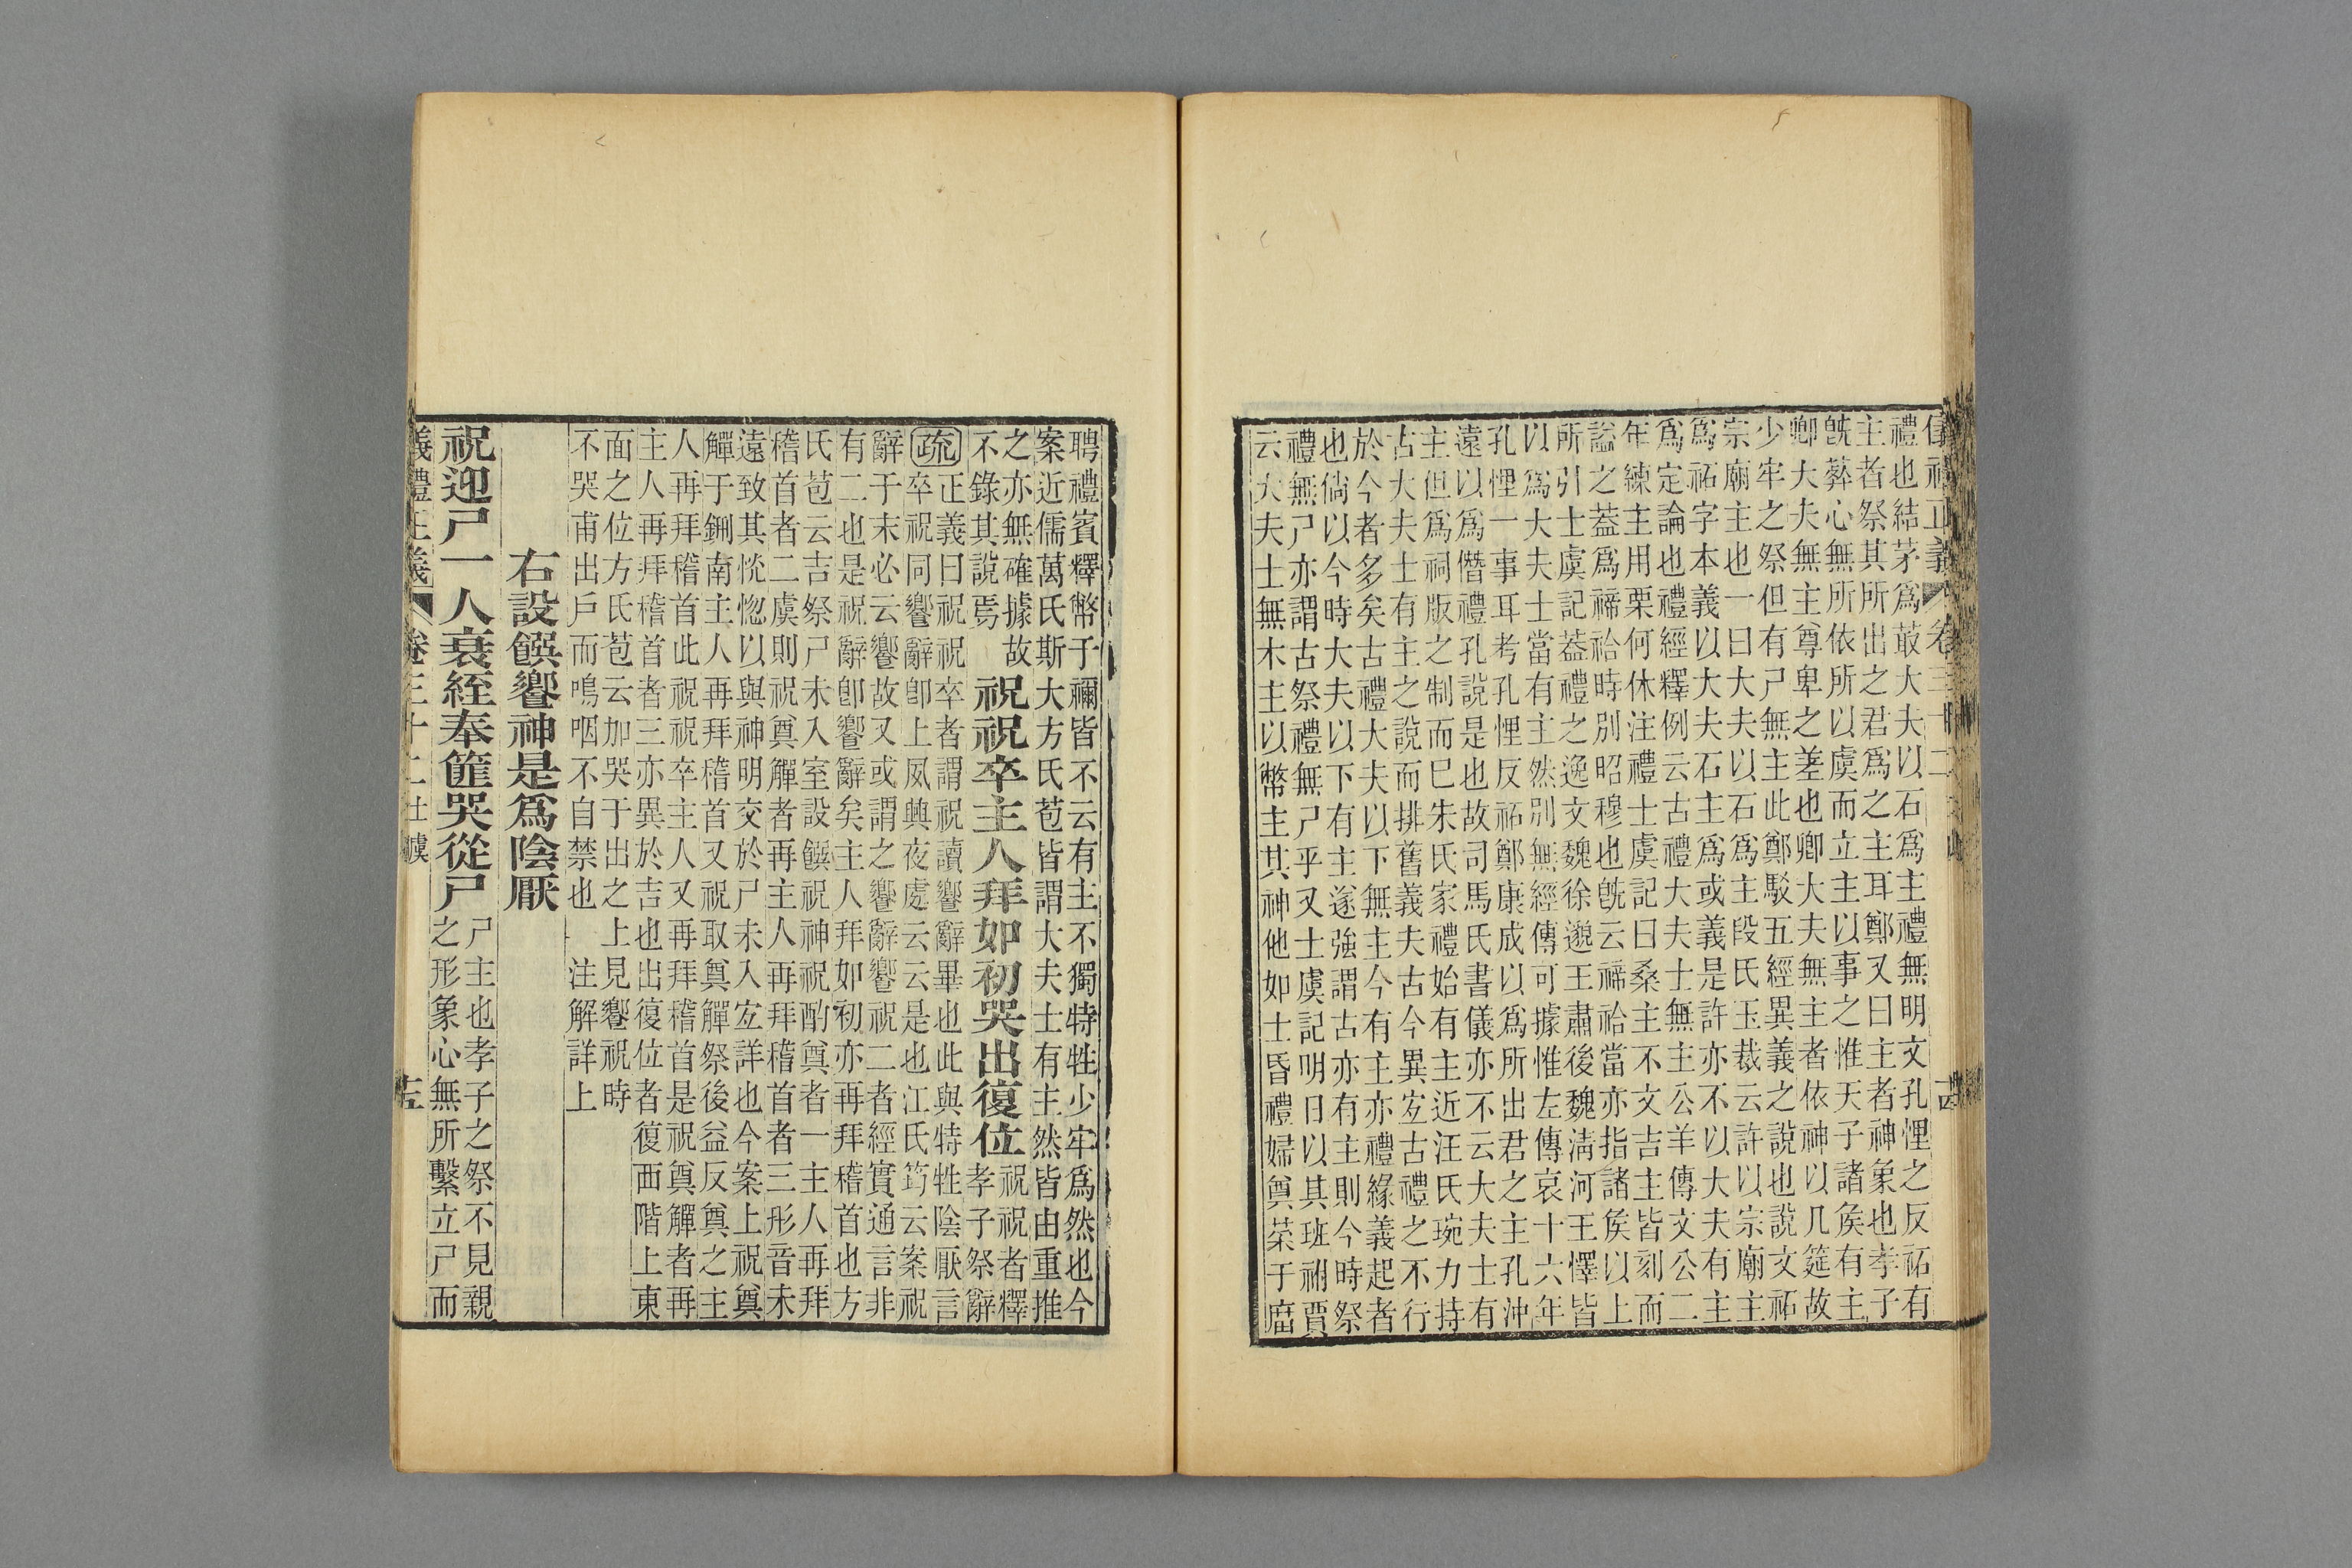 禮也結茅爲菆大夫以石爲主禮無明文孔悝之反祏有
主者祭其所出之君爲之主耳鄭又曰主者神象也孝子
旣葬心無所依所以虞而立主以事之惟天子諸侯有主
卿大夫無主尊卑之差也卿大夫無主者依神以几筵故
少牢之祭但有尸無主此鄭駁五經異義之說也說文祏
宗廟主也一曰大夫以石爲主段氏玉裁云許以宗廟主
爲祏字本義以大夫石主爲或義是許亦不以大夫有主
爲定論也禮經釋例云古禮大夫士無主公羊傳文公二
年練主用栗何休注禮士虞記曰桑主不文吉主皆刻而
諡之葢爲禘祫時別昭穆也旣云禘祫當亦指諸侯以上
所引士虞記葢禮之逸文魏徐邈王肅後魏淸河王懌皆
以爲大夫士當有主然別無經傳可據惟左傳哀十六年
孔悝一事耳考孔悝反祏鄭康成以爲所出君之主孔沖
遠以爲僭禮孔說是也故司馬氏書儀亦不云大夫士有
主但爲祠版之制而已朱氏家禮始有主近汪氏琬力持
古大夫士有主之說而排舊義夫古今異宐古禮之不行
於今者多矣古禮大夫以下無主今有主亦禮緣義起者
也倘以今時大夫以下有主遂強謂古亦有主則今時祭
禮無尸亦謂古祭禮無尸乎又士虞記明日以其班祔賈
云大夫士無木主以幣主其神他如士昏禮婦奠菜于廟
聘禮賓釋幣于禰皆不云有主不獨特牲少牢爲然也今
案近儒萬氏斯大方氏苞皆謂大夫士有主然皆由重推
之亦無確據故
不錄其說焉
祝祝卒主人拜如初哭出復位
祝祝者釋
孝子祭辭
疏正義曰祝祝卒者謂祝讀饗辭畢也此與特牲陰厭言
卒祝同饗辭卽上夙興夜處云云是也江氏筠云案祝
辭于末必云饗故又或謂之饗辭饗祝二者經實通言非
有二也是祝辭卽饗辭矣主人拜如初亦再拜稽首也方
氏苞云吉祭尸未入室設饌祝神祝酌奠者一主人再拜
稽首者二虞則祝奠觶者再主人再拜稽首者三形音未
遠致其恍惚以與神明交於尸未入宐詳也今案上祝奠
觶于鉶南主人再拜稽首又祝取奠觶祭後益反奠之主
人再拜稽首此祝祝卒主人又再拜稽首是祝奠觶者再
主人再拜稽首者三亦異於吉也出復位者復西階上東
面之位方氏苞云加哭于出之上見饗祝時
不哭甫出戶而嗚咽不自禁也 注解詳上
右設饌饗神是爲陰厭
祝迎尸一人衰絰奉篚哭從尸
尸主也孝子之祭不見親
之形象心無所繫立尸而